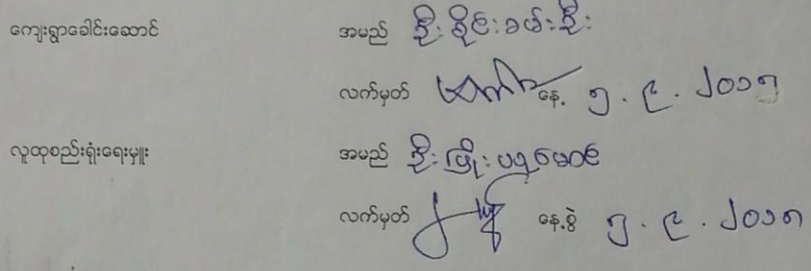 ကျေးရွာခေါင်းဆောင် အမည် ဦးစိုင်းခမ်းဦး
လက်မှတ် နေ့ ၅.၉.၂၀၁၅
လူထုစည်းရုံးရေးမှူး အမည် ဦးဖြိုး
လက်မှတ် နေ့စွဲ ၅.၉.၂၀၁၅